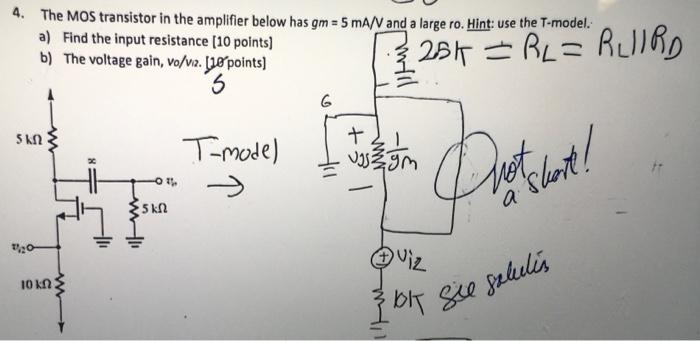 4. The MOS transistor in the amplifier below has gm = 5 mA/V and a large ro. Hint: use the T-model.
a) Find the input resistance [10 points]
b) The voltage gain, vo/vi2. [10 points]
5
25K = RL = RL||RD
G
5 kΩ
∞
T-model
+
vgs
1
gm
−
not
a short!
vo
5 kΩ
vi2
+
Vi2
10 kΩ
see